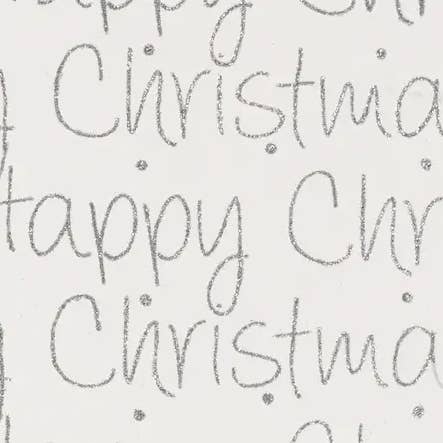 happy Chr
Christma
happy Chr
Christma